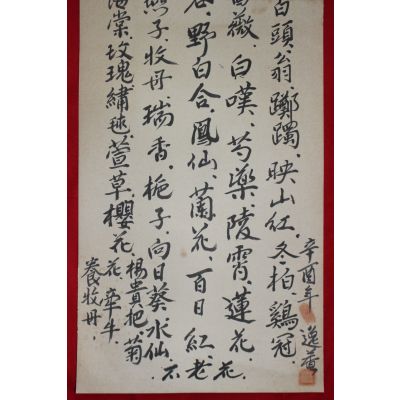 白頭翁.躑躅.映山紅.冬柏.鷄冠.
薔薇.白嘆.芍藥.陵霄.蓮花.花.
野白合.鳳仙.蘭花.百日紅.老
子.牧丹.瑞香.梔子.向日葵.水仙.不
海棠.玫瑰.繡毬.萱草.櫻花.楊貴妃.菊
花.牽牛.
養牧丹.
辛酉年